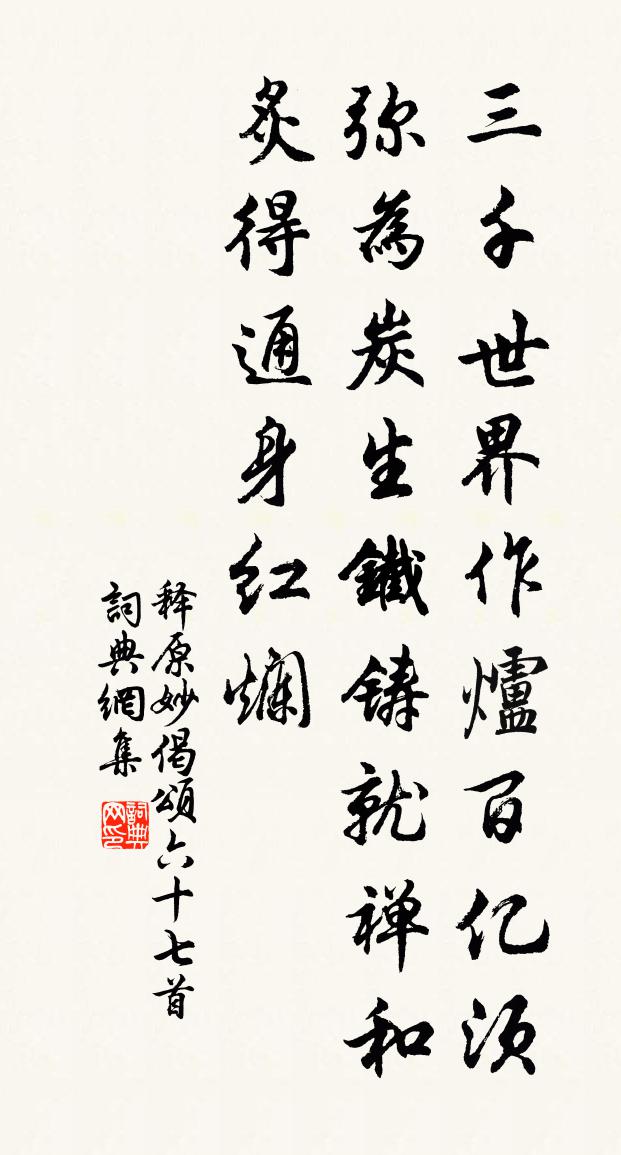 三千世界作爐百亿须
弥為炭生鐵鋳就禅和
炙得通身红爛
释原妙偈頌六十七首
詞典網集
詞典网印